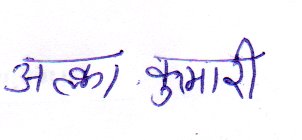 अल्का कुमारी